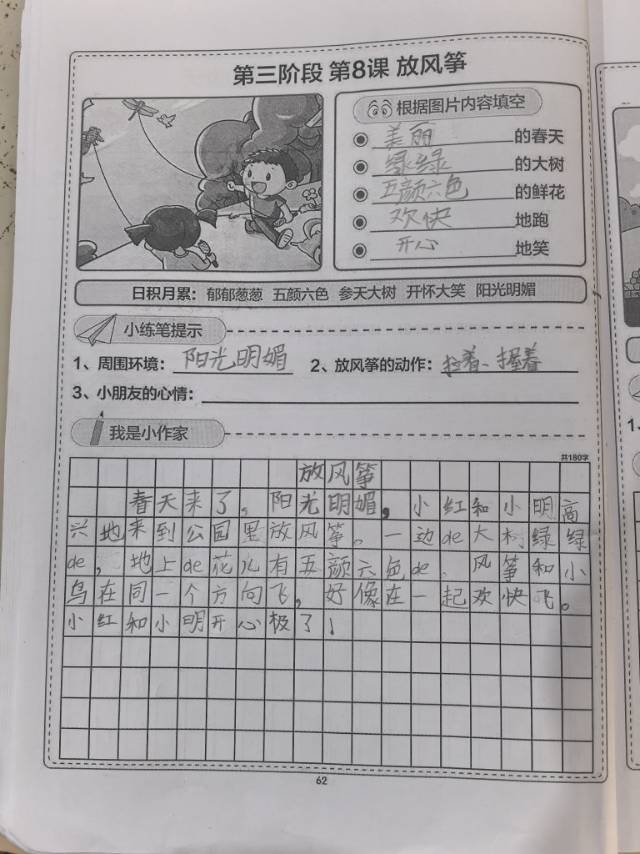 第三阶段 第8课 放风筝
根据图片内容填空
美丽的春天
绿绿的大树
五颜六色的鲜花
欢快地跑
开心地笑
日积月累：郁郁葱葱 五颜六色 参天大树 开怀大笑 阳光明媚
小练笔提示
1、周围环境：阳光明媚 2、放风筝的动作：拉着、握着
3、小朋友的心情：
我是小作家
共180字
放风筝
春天来了。阳光明媚，小红和小明高
兴地来到公园里放风筝。一边de大树绿绿
de，地上de花儿有五颜六色de．风筝和小
鸟在同一个方向飞，好像在一起欢快飞。
小红和小明开心极了！
62
1、